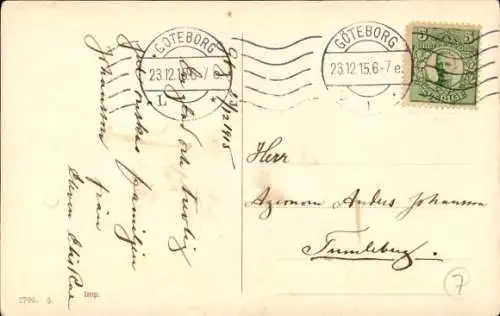 GÖTEBORG
23.12.15.6-7 e
L
GÖTEBORG
23.12.15.6-7 e.
1
5 5
SVERIGE
Gbg 23/12 1915
En glad och trevlig
Jul önskas familjen
Johansson från
Herr
Agronom Anders Johansson
Tumleberg.
2799. 5. Imp.
7